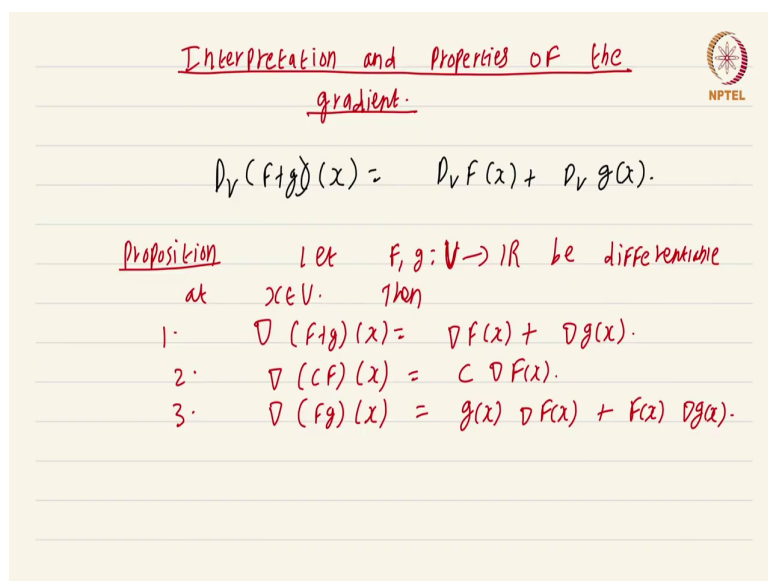 Interpretation and Properties of the
gradient.
NPTEL
D_v (F+g)(x) = D_v F(x) + D_v g(x).
Proposition Let F, g : U → ℝ be differentiable
at x ∈ U. Then
1. ∇ (F+g)(x) = ∇F(x) + ∇g(x).
2. ∇ (cF)(x) = c ∇F(x).
3. ∇ (Fg)(x) = g(x) ∇F(x) + F(x) ∇g(x).